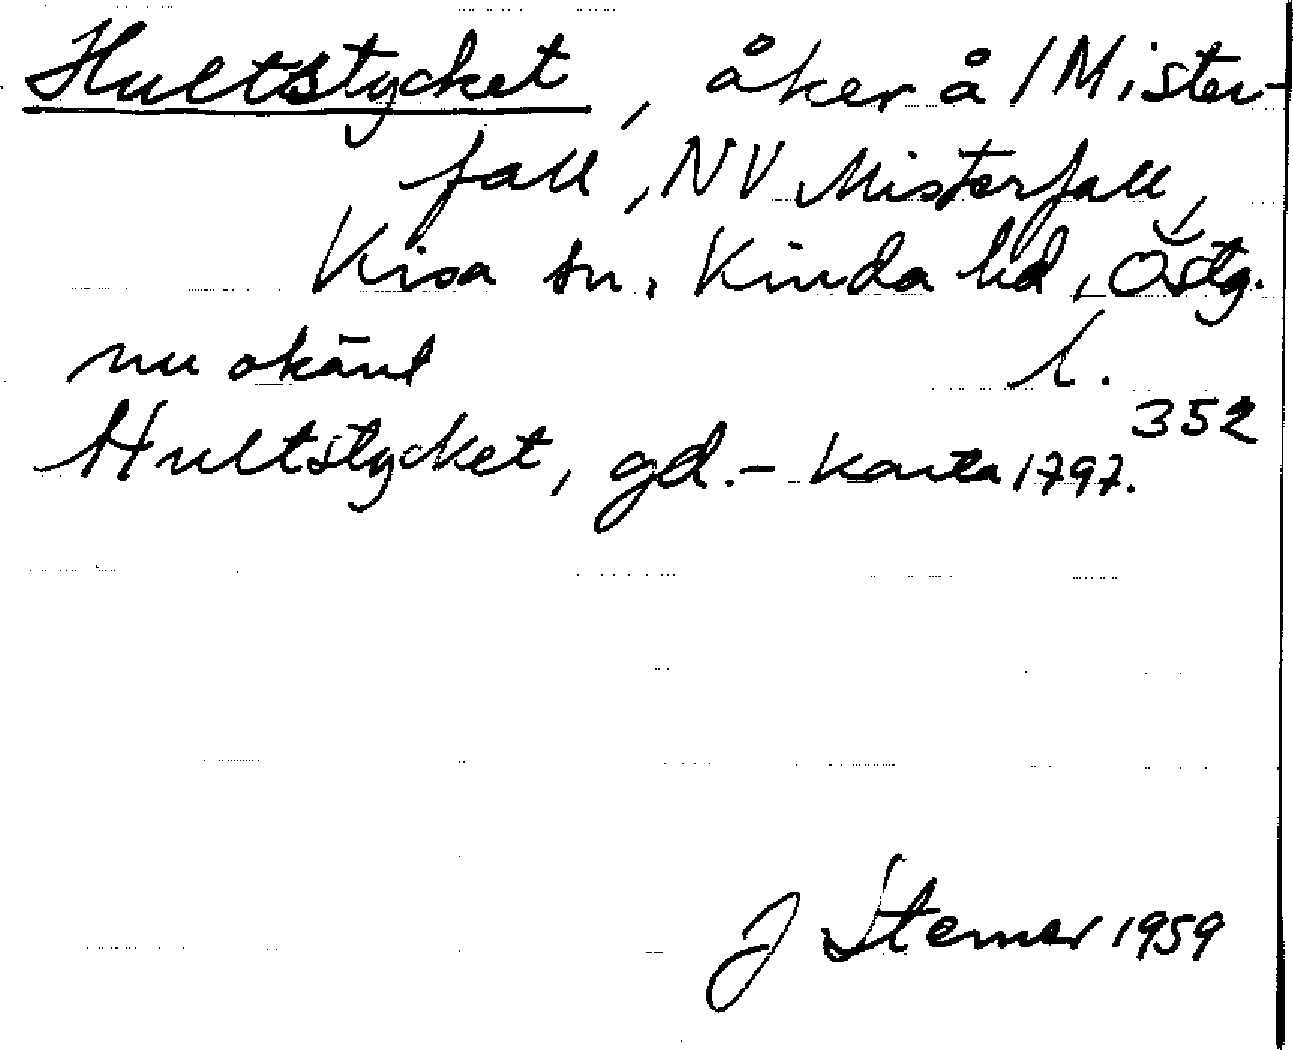 Hultstycket, åker å 1 Mister-
fall, NV Misterfall,
Kisa sn, Kinda hd, Östg.
nu okänt l.
352
Hultstycket, gd. - karta 1797.
J Sterner 1959